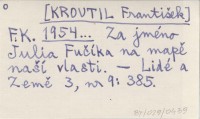 [KROUTIL František]
F.K. 1954... Za jméno
Julia Fučíka na mapě
naší vlasti. — Lidé a
Země 3, nr 9: 385.